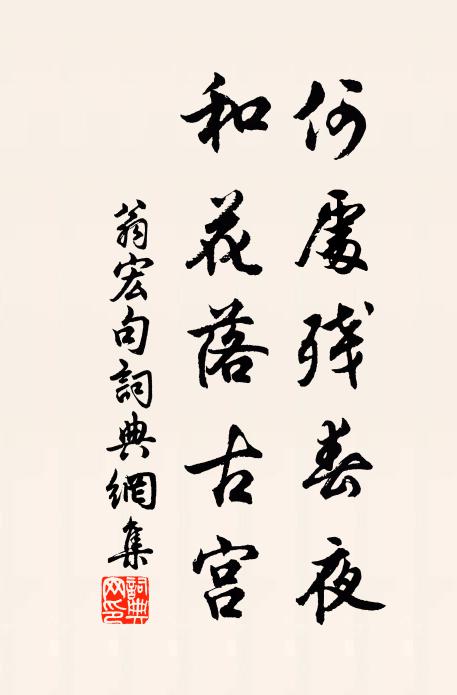 何處残春夜
和花落古宫
翁宏句詞典網集
詞典網印